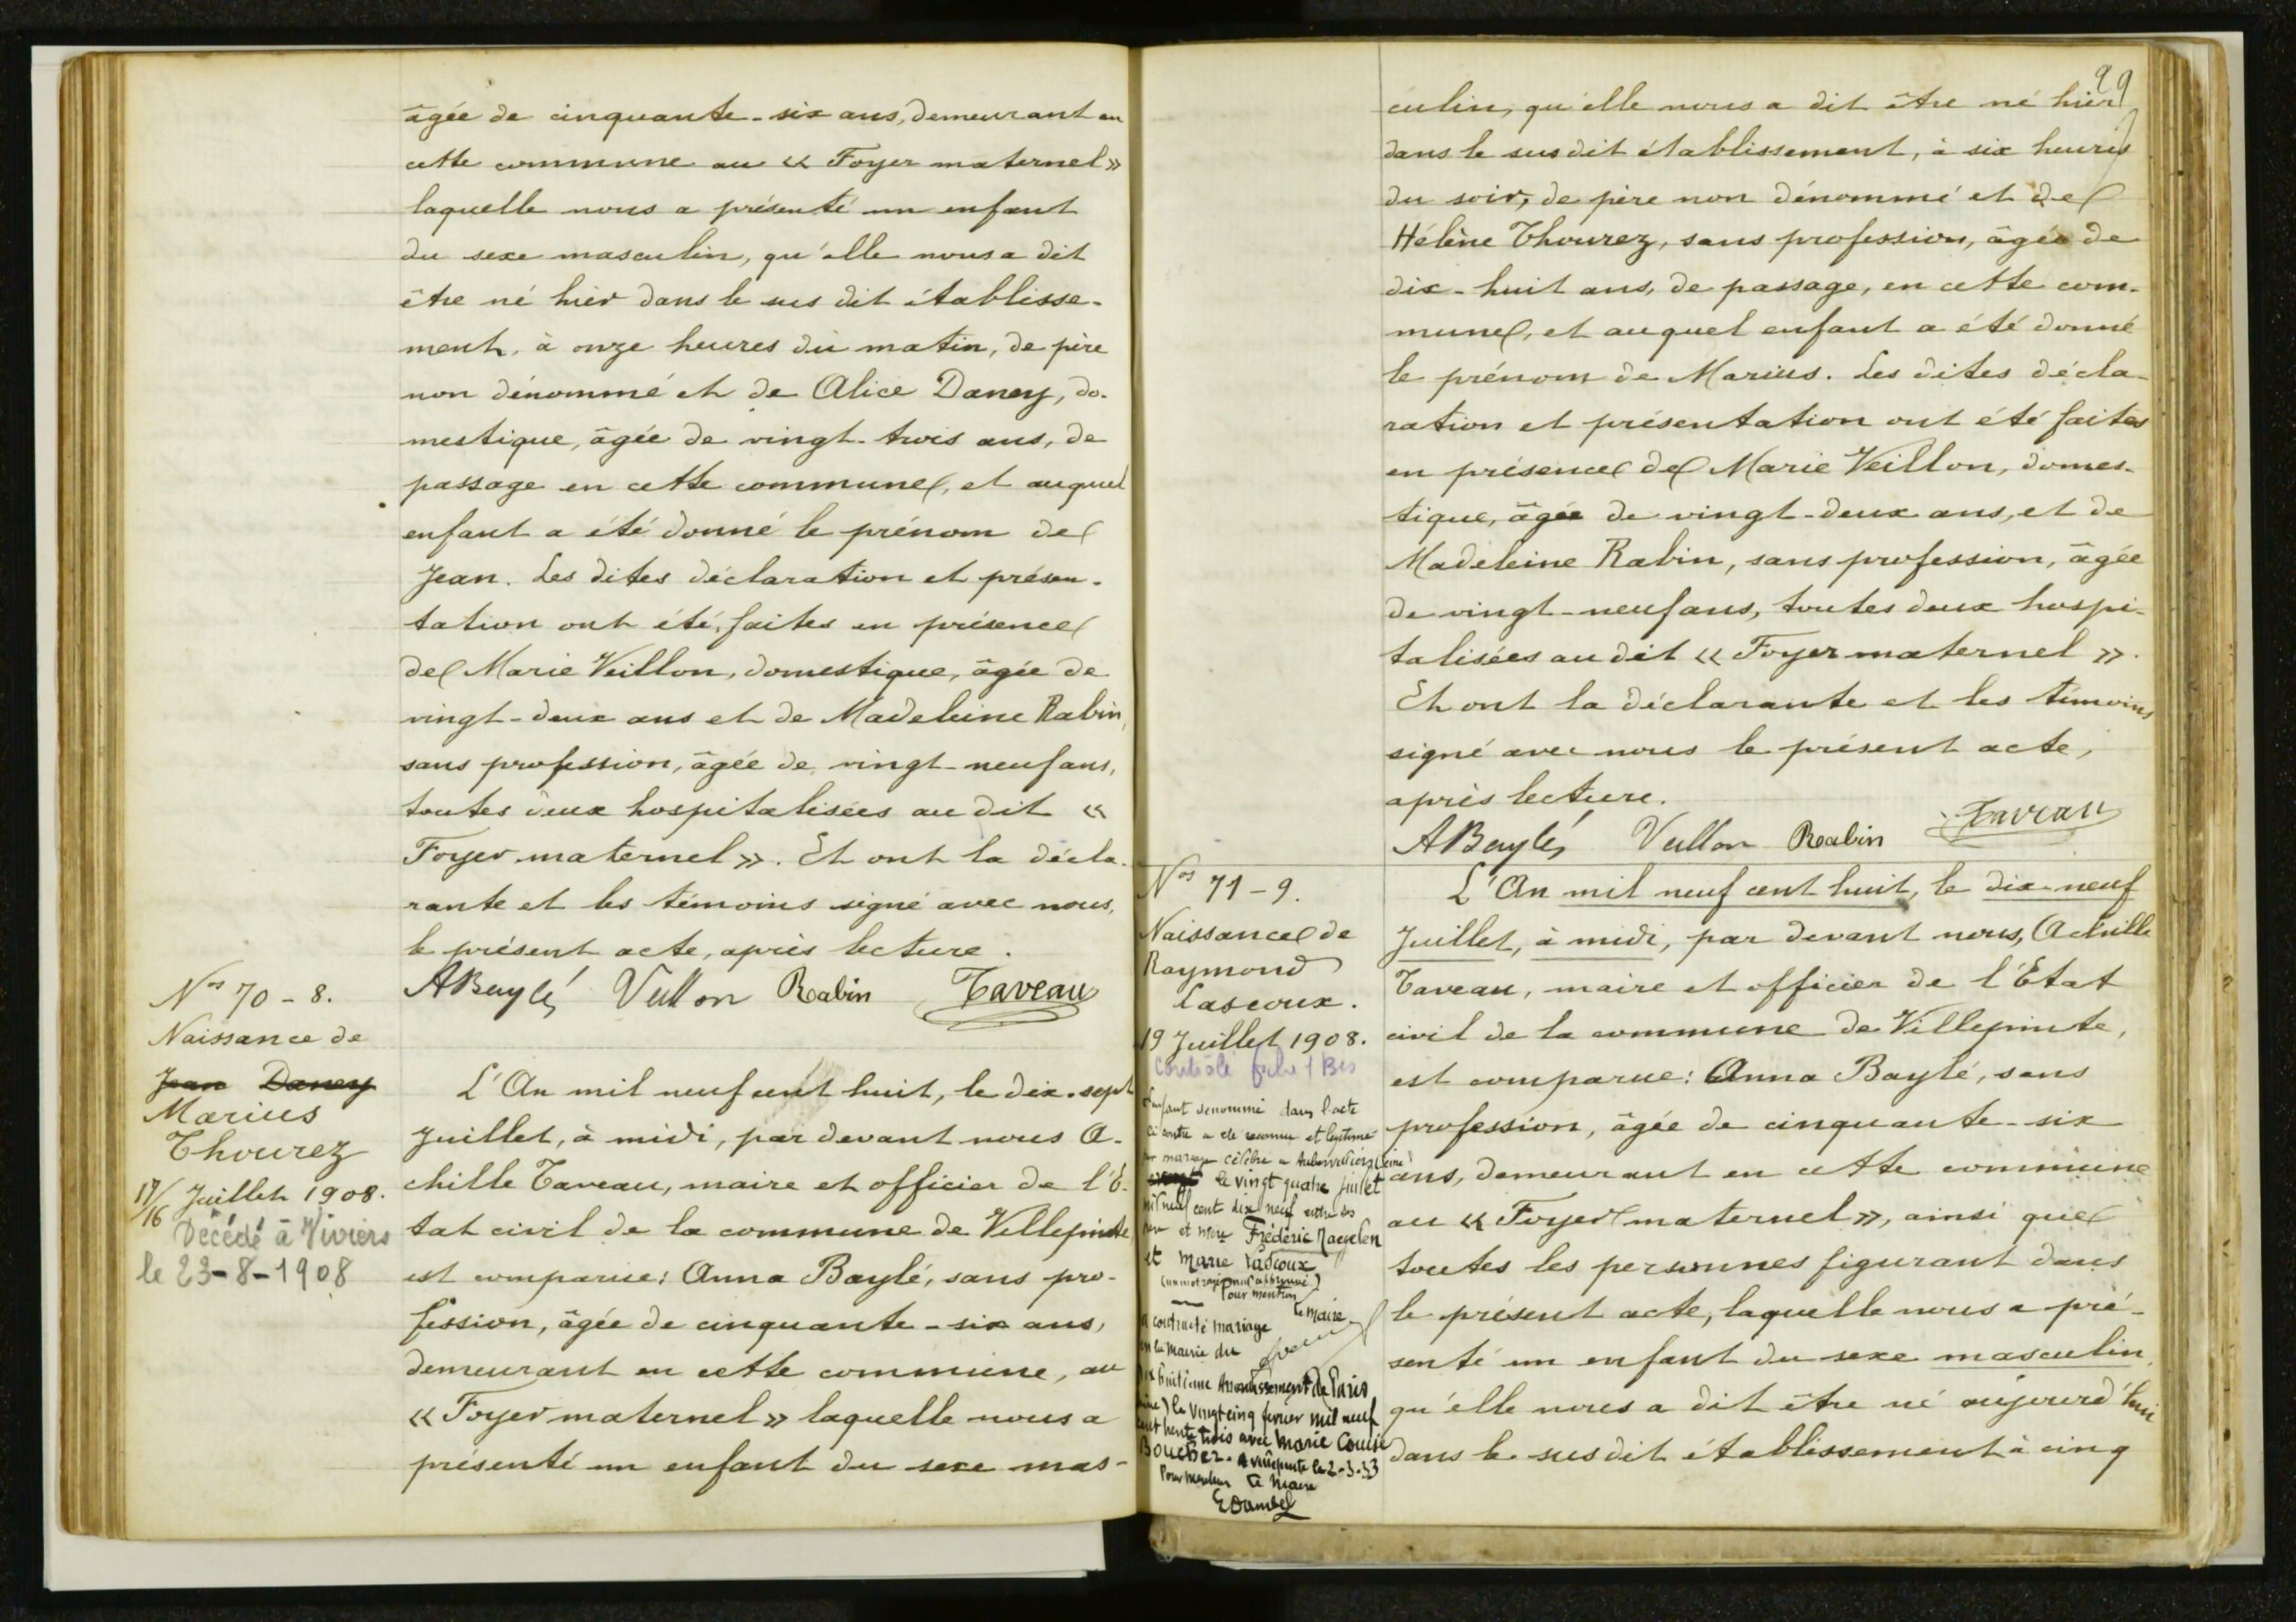 âgée de cinquante-six ans, demeurant en
cette commune au « Foyer maternel »
laquelle nous a présenté un enfant
du sexe masculin, qu'elle nous a dit
être né hier dans le sus dit établisse-
ment, à onze heures du matin, de père
non dénommé et de Alice Daney, do-
mestique, âgée de vingt-trois ans, de
passage en cette commune, et auquel
enfant a été donné le prénom de
Jean. Les dites déclaration et présen-
tation ont été faites en présence
de Marie Veillon, domestique, âgée de
vingt-deux ans et de Madeleine Rabin,
sans profession, âgée de vingt-neuf ans,
toutes deux hospitalisées au dit «
Foyer maternel ». Et ont la décla-
rante et les témoins signé avec nous,
le présent acte, après lecture.
ABaylé Veillon Rabin Taveau
Nos 70-8.
Naissance de
Jean Daney
Marius
Thourez
17/16 Juillet 1908.
Décédé à Viviers
le 23-8-1908
L'An mil neuf cent huit, le dix-sept
Juillet, à midi, par devant nous A-
chille Taveau, maire et officier de l'É-
tat civil de la commune de Villepinte
est comparue: Anna Baylé, sans pro-
fession, âgée de cinquante-six ans,
demeurant en cette commune, au
« Foyer maternel » laquelle nous a
présenté un enfant du sexe mas-
99
culin, qu'elle nous a dit être né hier
dans le sus dit établissement, à six heures
du soir, de père non dénommé et de
Hélène Thourez, sans profession, âgée de
dix-huit ans, de passage, en cette com-
mune, et auquel enfant a été donné
le prénom de Marius. Les dites décla-
ration et présentation ont été faites
en présence de Marie Veillon, domes-
tique, âgée de vingt-deux ans, et de
Madeleine Rabin, sans profession, âgée
de vingt-neuf ans, toutes deux hospi-
talisées au dit « Foyer maternel ».
Et ont la déclarante et les témoins
signé avec nous le présent acte,
après lecture.
ABaylé Veillon Rabin Taveau
Nos 71-9.
Naissance de
Raymond
Lascoux.
19 Juillet 1908.
L'enfant dénommé dans l'acte
ci contre a été reconnu et légitimé
par mariage célébré à Aubervilliers (Seine)
le vingt quatre juillet
mil neuf cent dix neuf entre ses
père et mère Frédéric Naegelen
et Marie Lascoux
Pour mention
le maire
a contracté mariage
en la mairie du
Dix huitième Arrondissement de Paris
(Seine) le vingt cinq février mil neuf
cent trente trois avec Marie Louise
Boucher. A Villepinte le 2-3-33
Pour mention Le Maire
L'An mil neuf cent huit, le dix-neuf
Juillet, à midi, par devant nous, Achille
Taveau, maire et officier de l'Etat
civil de la commune de Villepinte,
est comparue: Anna Baylé, sans
profession, âgée de cinquante-six
ans, demeurant en cette commune
au « Foyer maternel », ainsi que
toutes les personnes figurant dans
le présent acte, laquelle nous a pré-
senté un enfant du sexe masculin,
qu'elle nous a dit être né aujourd'hui
dans le sus dit établissement à cinq